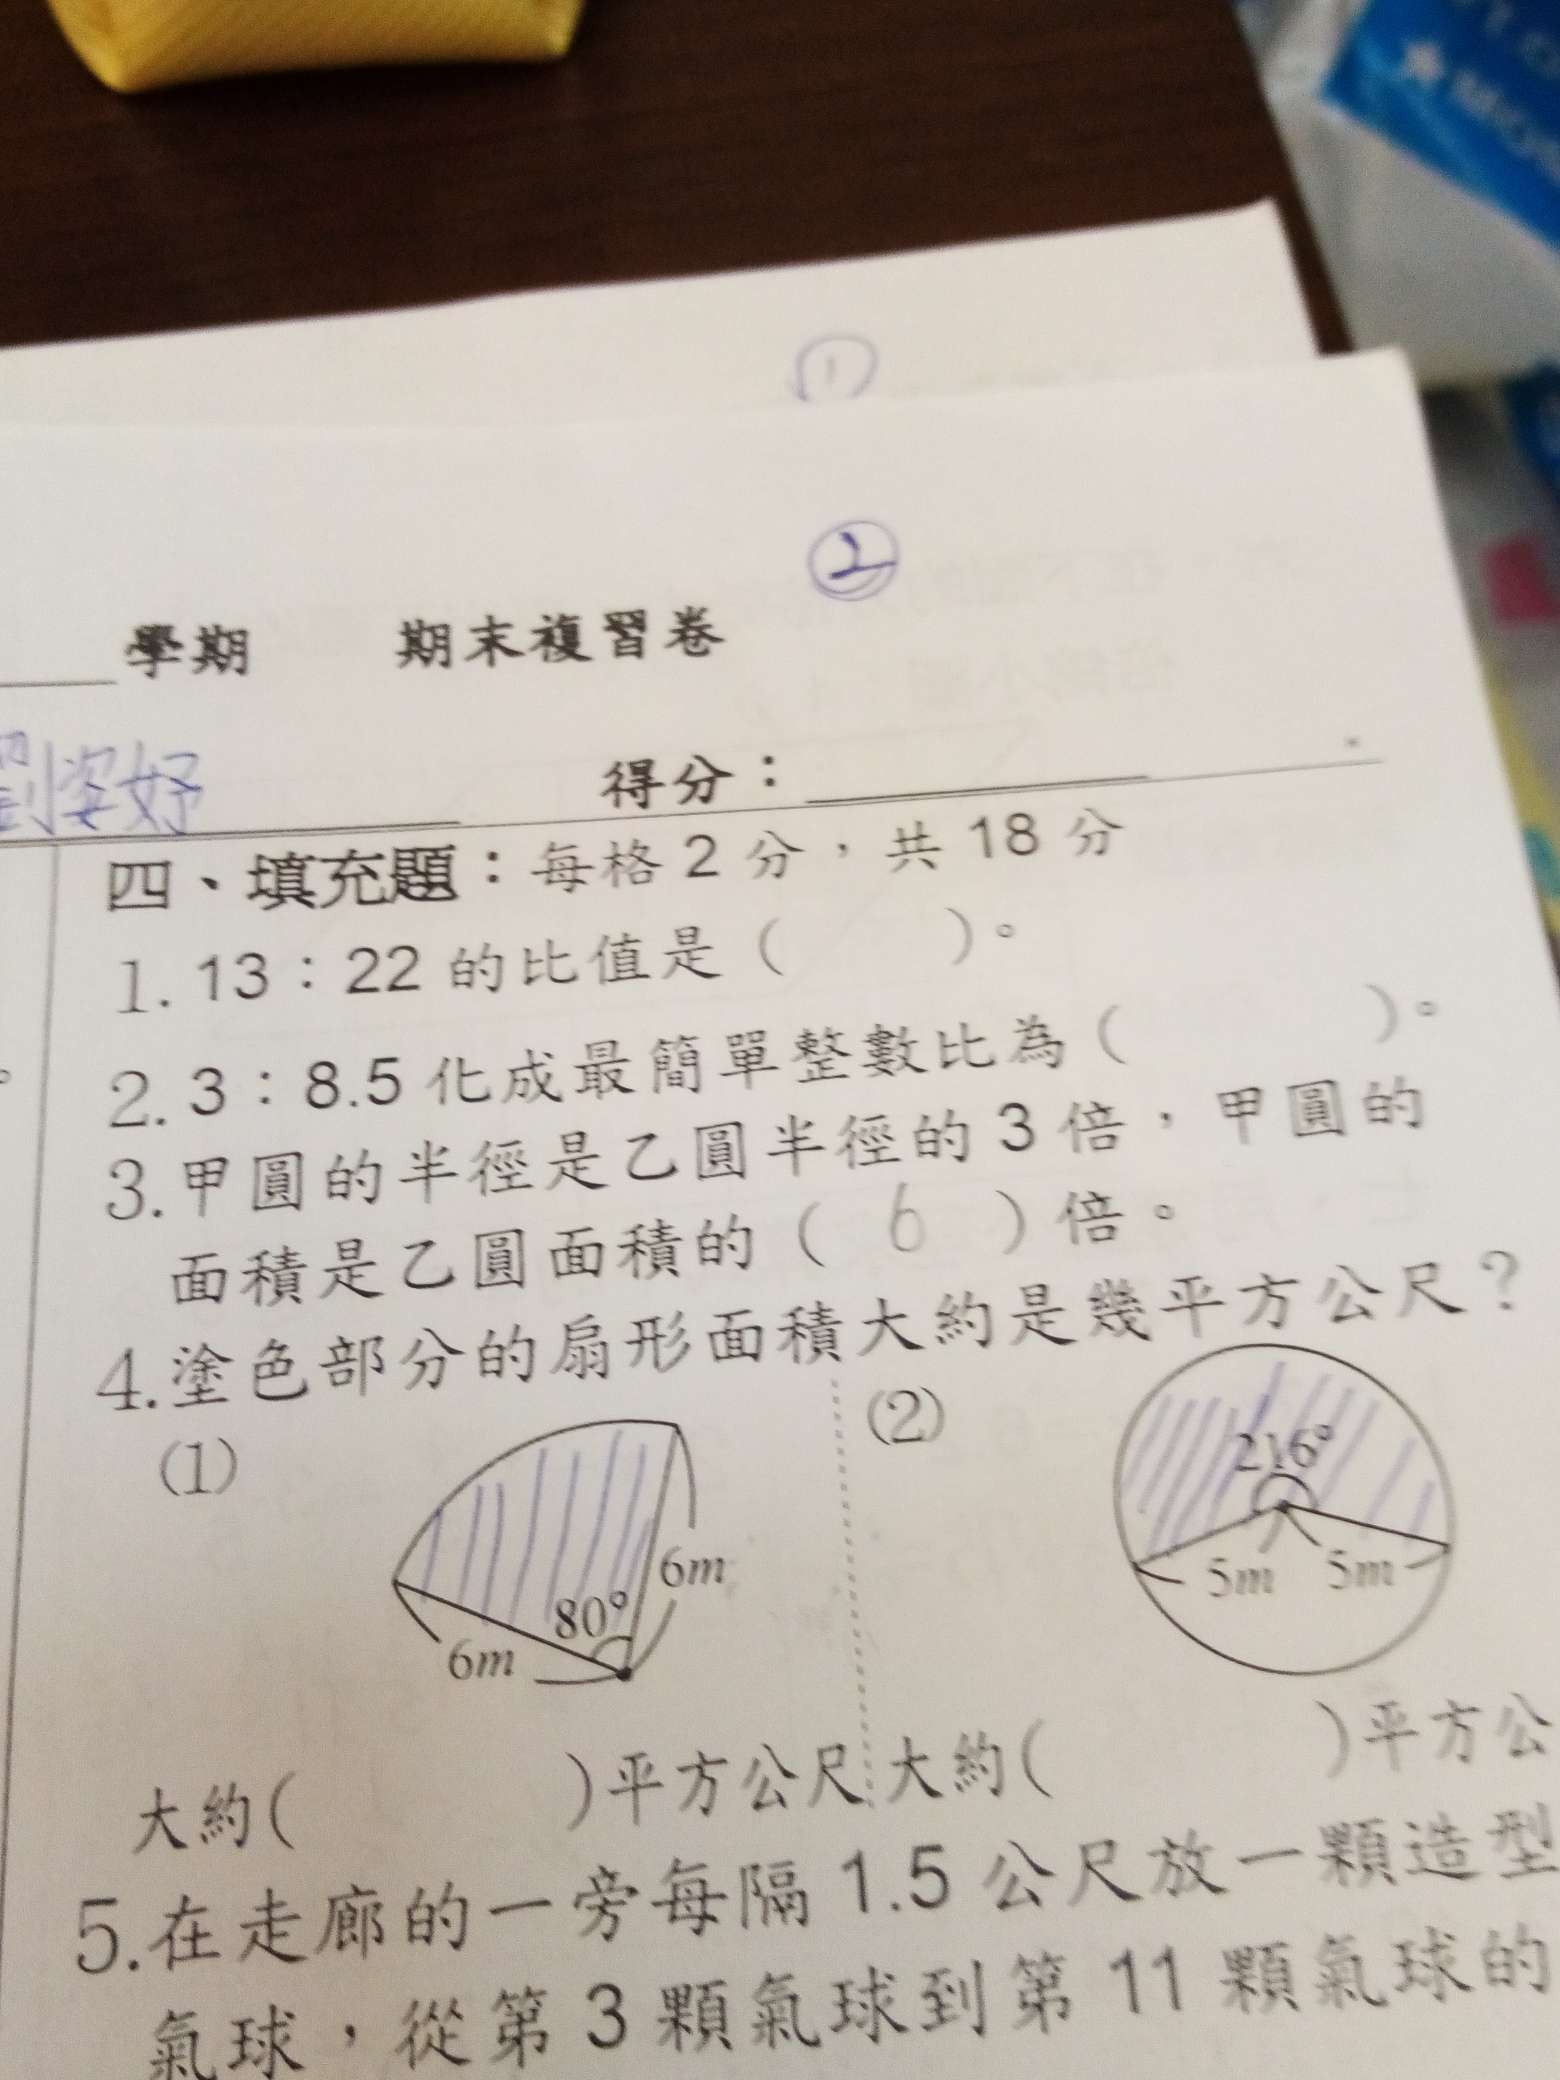 ①
②
學期 期末複習卷
劉姿妤
得分：
四、填充題：每格2分，共18分
1. 13：22的比值是（ ）。
2. 3：8.5化成最簡單整數比為（ ）。
3. 甲圓的半徑是乙圓半徑的3倍，甲圓的
面積是乙圓面積的（ 6 ）倍。
4. 塗色部分的扇形面積大約是幾平方公尺？
(1)
80°
6m
6m
大約( )平方公尺
(2)
216°
5m 5m
大約( )平方公
5. 在走廊的一旁每隔1.5公尺放一顆造型
氣球，從第3顆氣球到第11顆氣球的